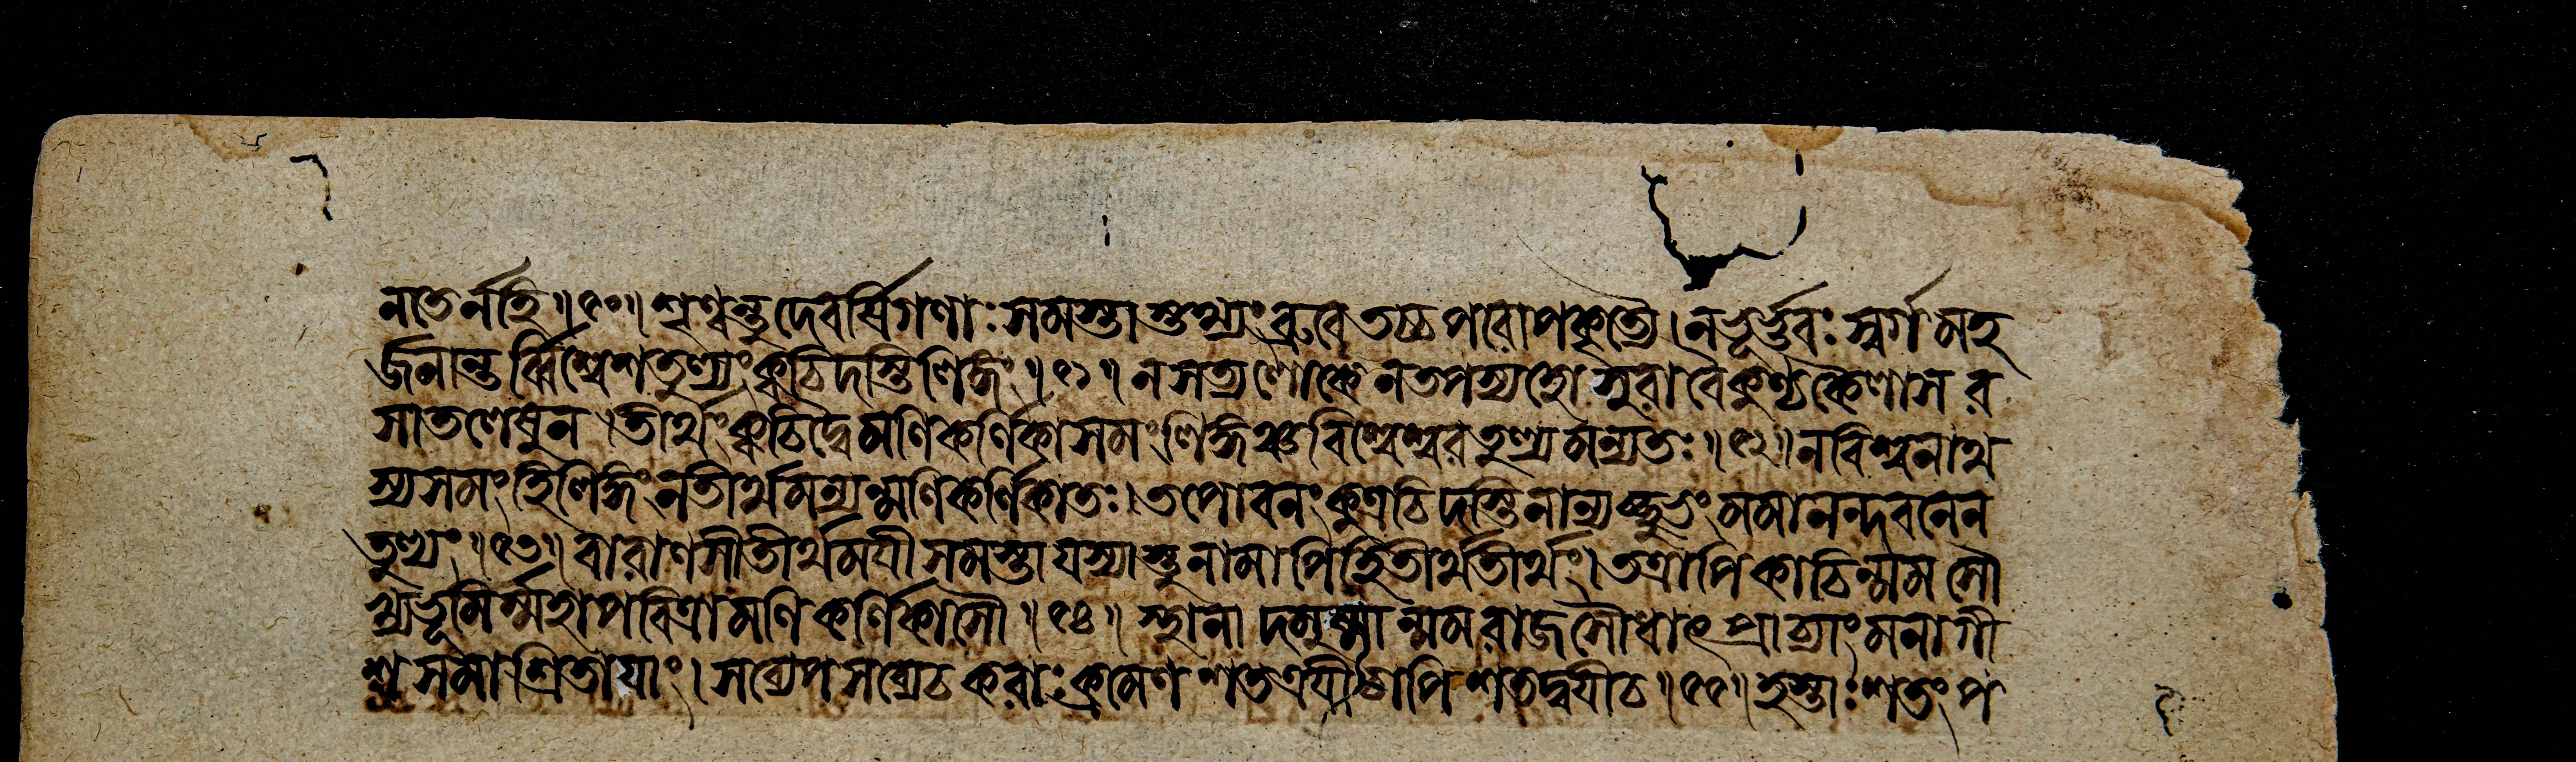 নাতের্নহি॥৫০॥শৃণ্বন্তুদেবর্ষিগণাঃসমস্তাস্তথ্যংব্রুবেতচ্চপরোপকৃত্যৈ।নভূর্ভুবঃস্বর্গমহ
র্জনান্তর্ব্বিশ্বেশতুল্যংক্বচিদস্তিলিঙ্গং॥৫১॥নসত্যলোকেনতপস্যহোসুরাবৈকুণ্ঠকৈলাসর
সাতলেষুন।তীর্থংক্বচিদ্বৈমণিকর্ণিকাসমংলিঙ্গঞ্চবিশ্বেশ্বরতুল্যমন্যতঃ॥৫২॥নবিশ্বনাথ
স্যসমংহিলিঙ্গংনতীর্থমন্যন্মণিকর্ণিকাতঃ।তপোবনংকুত্রচিদস্তিনান্যচ্ছুভংমমানন্দবনেন
তুল্যং॥৫৩॥বারাণসীতীর্থময়ীসমস্তাযস্যাস্তুনামাপিহিতীর্থতীর্থং।তত্রাপিকাচিন্মমসৌ
খ্যভূমির্ম্মহাপবিত্রামণিকর্ণিকাসৌ॥৫৪॥স্থানাদমুষ্মান্মমরাজসৌধাৎপ্রাচ্যাংমনাগী
শসমাশ্রিতায়াং।সব্যেপসব্যেচকরাঃক্রমেণশতত্রয়ীচাপিশতদ্বয়ীচ॥৫৫॥হস্তাঃশতংপ